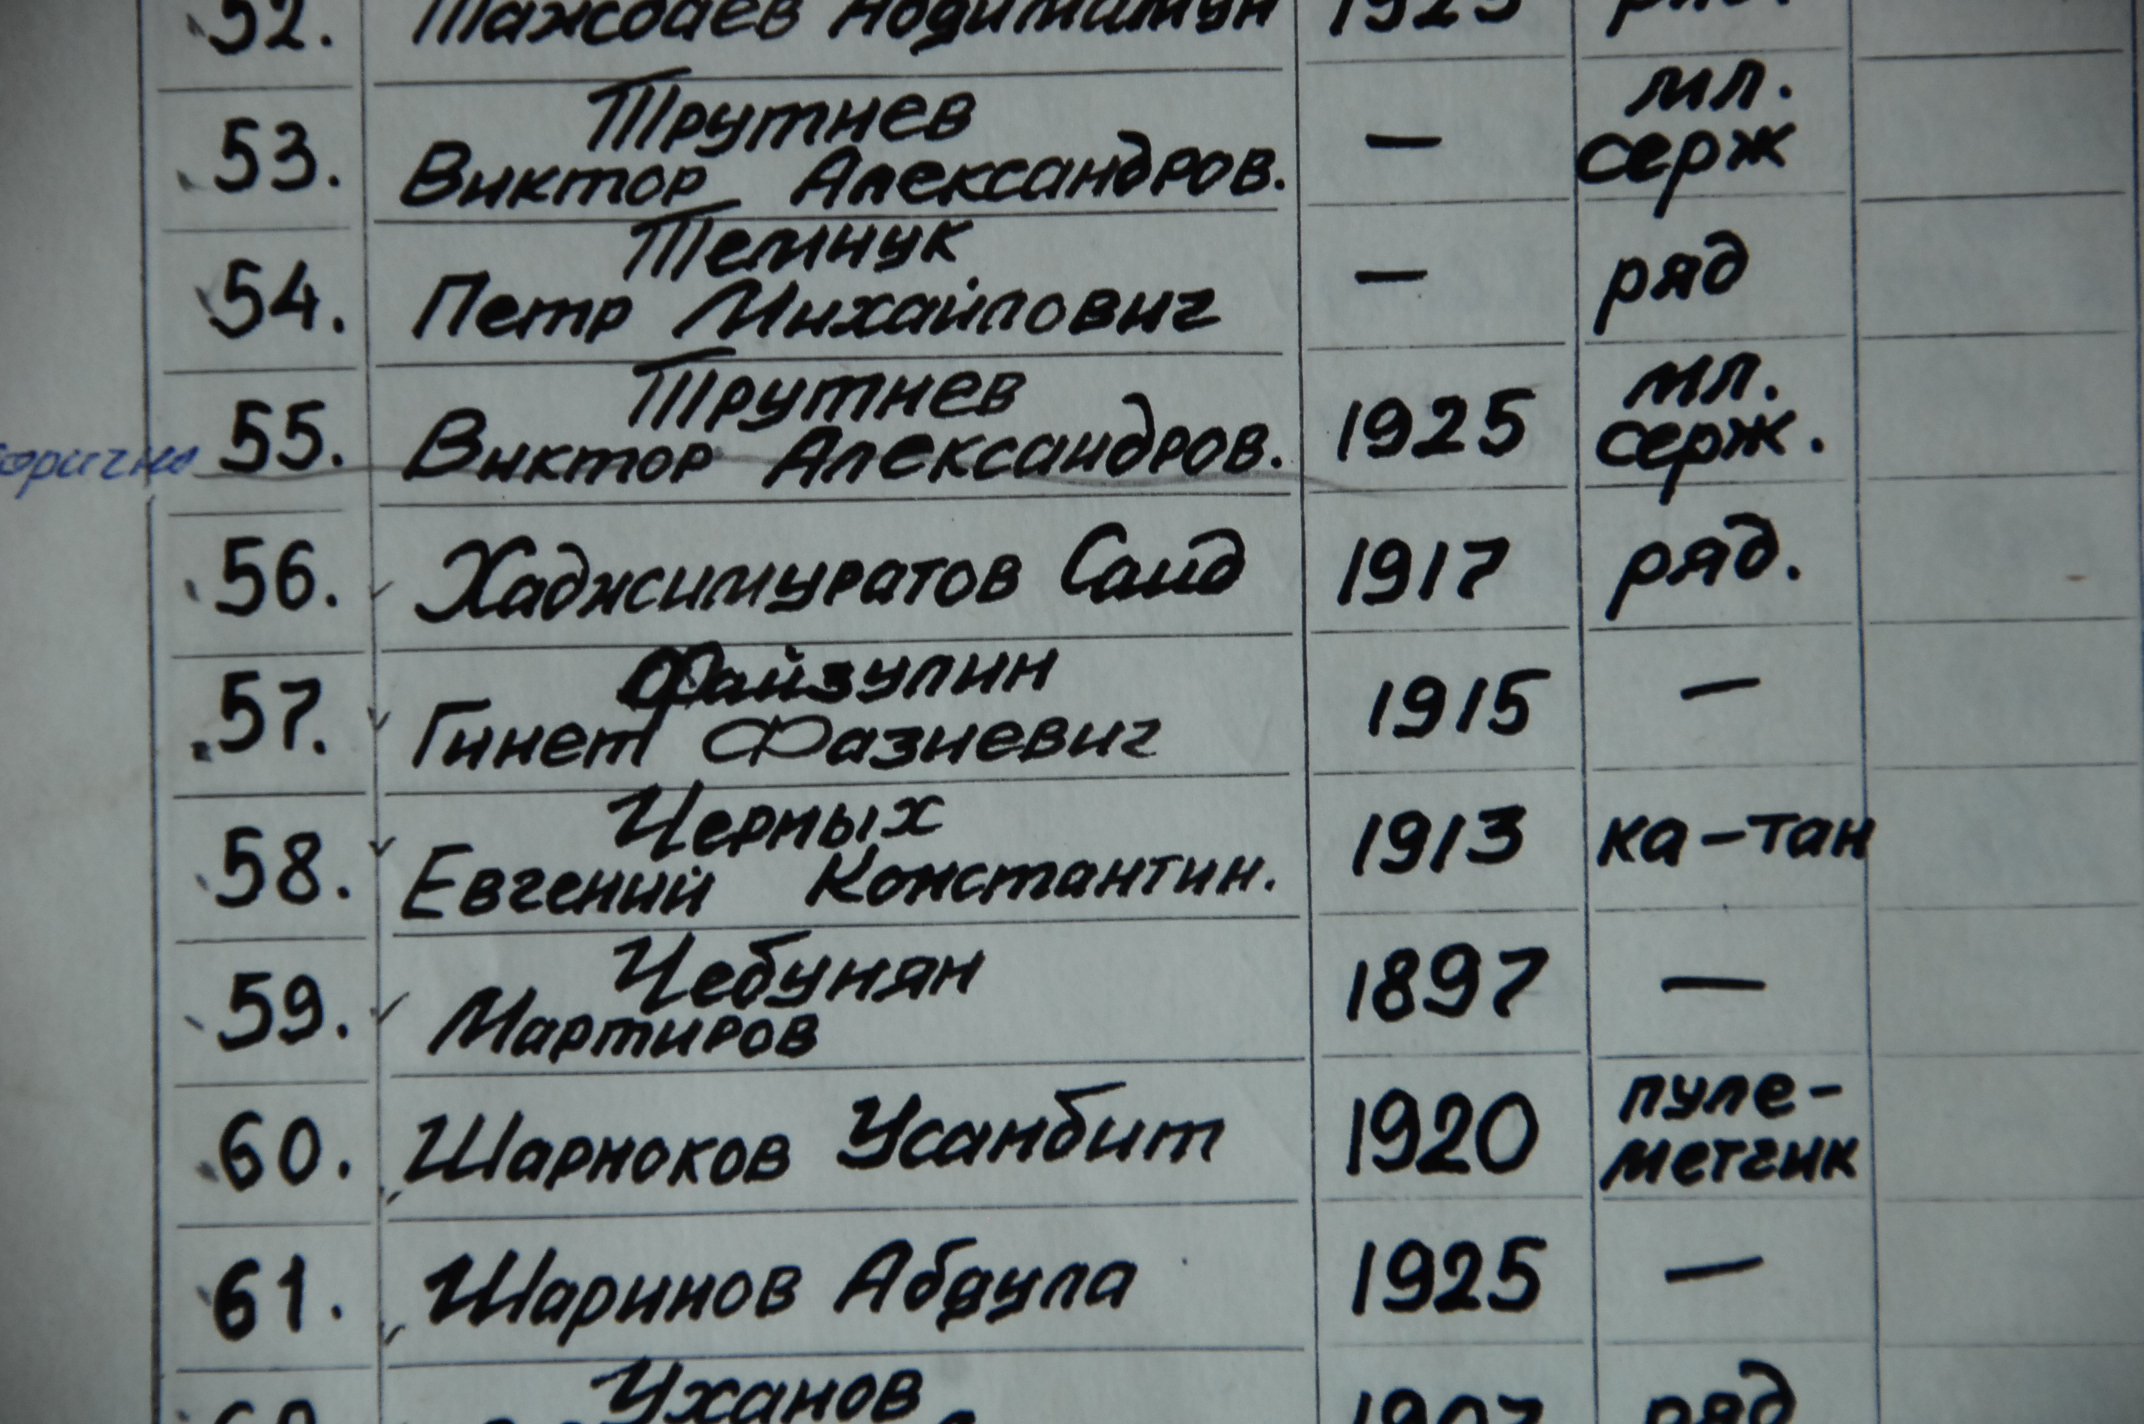 52. Тажбаев 1925 ряд.
Трутнев мл.
53. Виктор Александров. — серж
Темчук
54. Петр Михайлович — ряд
Трутнев мл.
55. Виктор Александров. 1925 серж.
56. Хаджимуратов Саид 1917 ряд.
Файзулин
57. Гинет Фазиевич 1915 —
Черных
58. Евгений Константин. 1913 ка-тан
Чебунян
59. Мартиров 1897 —
60. Шарноков Усанбит 1920 пуле-
метчик
61. Шаринов Абдула 1925 —
Уханов 1907 ряд